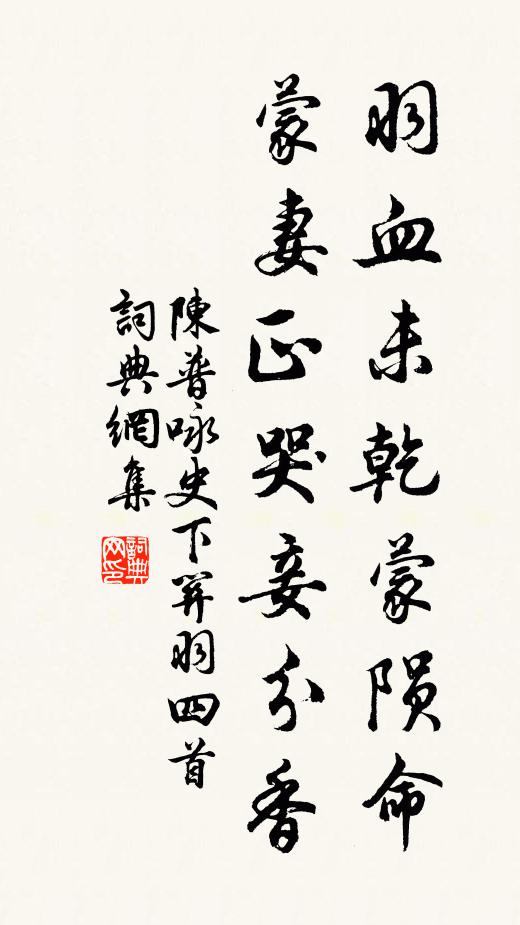 羽血未乾蒙陨命
蒙妻正哭妾分香
陳普咏史下关羽四首
詞典網集
詞典
网印